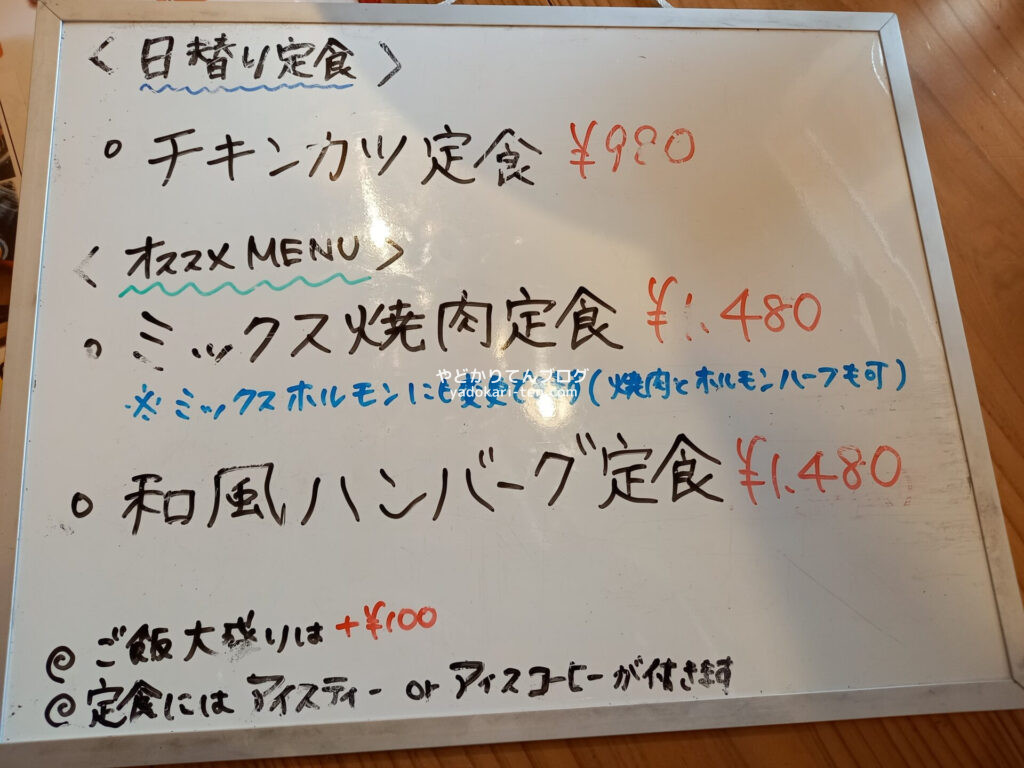 〈 日替り定食 〉
○ チキンカツ定食 ¥930
〈 オススメMENU 〉
○ ミックス焼肉定食 ¥1.480
やどかりてんブログ
yadokari-ten.com
※ミックスホルモンにも変更 (焼肉とホルモンハーフも可)
○ 和風ハンバーグ定食 ¥1.480
◎ ご飯大盛りは +¥100
◎ 定食にはアイスティー or アイスコーヒーが付きます